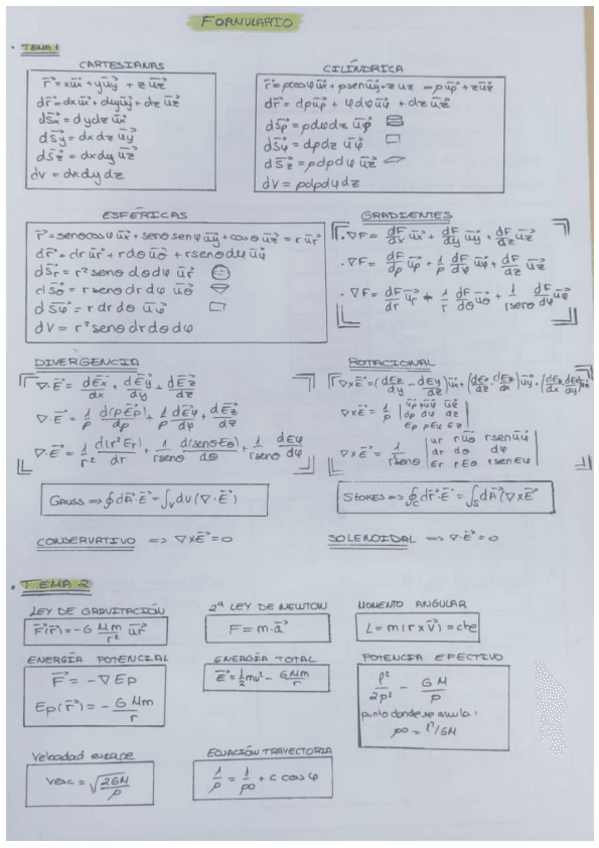 FORMULARIO
• TEMA 1
CARTESIANAS
r⃗ = xu⃗x + yu⃗y + z u⃗z
dr⃗ = dxu⃗x + dyu⃗y + dz u⃗z
dS⃗x = dydz u⃗x
dS⃗y = dxdz u⃗y
dS⃗z = dxdy u⃗z
dV = dxdydz
CILÍNDRICA
r⃗ = ρcosφ u⃗x + ρsenφu⃗y + z uz = ρu⃗ρ + zu⃗z
dr⃗ = dρu⃗ρ + φdφu⃗φ + dz u⃗z
dS⃗ρ = ρdφdz u⃗ρ
dS⃗φ = dρdz u⃗φ
dS⃗z = ρdρdφ u⃗z
dV = ρdρdφdz
ESFÉRICAS
r⃗ = senθcosφ u⃗x + senθ senφ u⃗y + cosθ u⃗z = r u⃗r
dr⃗ = dr u⃗r + rdθ u⃗θ + rsenθdφ u⃗φ
dS⃗r = r² senθ dθdφ u⃗r
dS⃗θ = r senθ drdφ u⃗θ
dS⃗φ = r dr dθ u⃗φ
dV = r² senθ dr dθ dφ
GRADIENTES
• ∇F = dF/dx u⃗x + dF/dy u⃗y + dF/dz u⃗z
• ∇F = dF/dρ u⃗ρ + 1/ρ dF/dφ u⃗φ + dF/dz u⃗z
• ∇F = dF/dr u⃗r + 1/r dF/dθ u⃗θ + 1/rsenθ dF/dφ u⃗φ
DIVERGENCIA
∇·E⃗ = dE⃗x/dx + dE⃗y/dy + dE⃗z/dz
∇·E⃗ = 1/ρ d(ρE⃗ρ)/dρ + 1/ρ dE⃗φ/dφ + dE⃗z/dz
∇·E⃗ = 1/r² d(r²Er)/dr + 1/rsenθ d(senθEθ)/dθ + 1/rsenθ dEφ/dφ
ROTACIONAL
∇×E⃗ = (dEz/dy - dEy/dz)u⃗x + (dEx/dz - dEz/dx)u⃗y + (dEy/dx - dEx/dy)u⃗z
∇×E⃗ = 1/ρ | u⃗ρ ρu⃗φ u⃗z
dρ dφ dz
Eρ ρEφ Ez |
∇×E⃗ = 1/r²senθ | ur ru⃗θ rsenu⃗φ
dr dθ dφ
Er rEθ rsenEφ |
GAUSS ⇒ ∮dA⃗·E⃗ = ∫v dv (∇·E⃗)
STOKES ⇒ ∮c dr⃗·E⃗ = ∫s dA⃗(∇×E⃗
CONSERVATIVO ⇒ ∇×E⃗ = 0
SOLENOIDAL ⇒ ∇·E⃗ = 0
• TEMA 2
LEY DE GRAVITACIÓN
F⃗(r⃗) = -G Mm/r² u⃗r
2ª LEY DE NEWTON
F = m·a⃗
MOMENTO ANGULAR
L = m(r×v⃗) = cte
ENERGÍA POTENCIAL
F⃗ = -∇Ep
Ep(r⃗) = - GMm/r
ENERGÍA TOTAL
E⃗ = ½mv² - GMm/r
POTENCIA EFECTIVO
l²/2ρ² - GM/ρ
punto donde se anula:
ρ0 = l²/GM
Velocidad escape
vesc = √2GM/ρ
ECUACIÓN TRAYECTORIA
1/ρ = 1/ρ0 + c cosφ